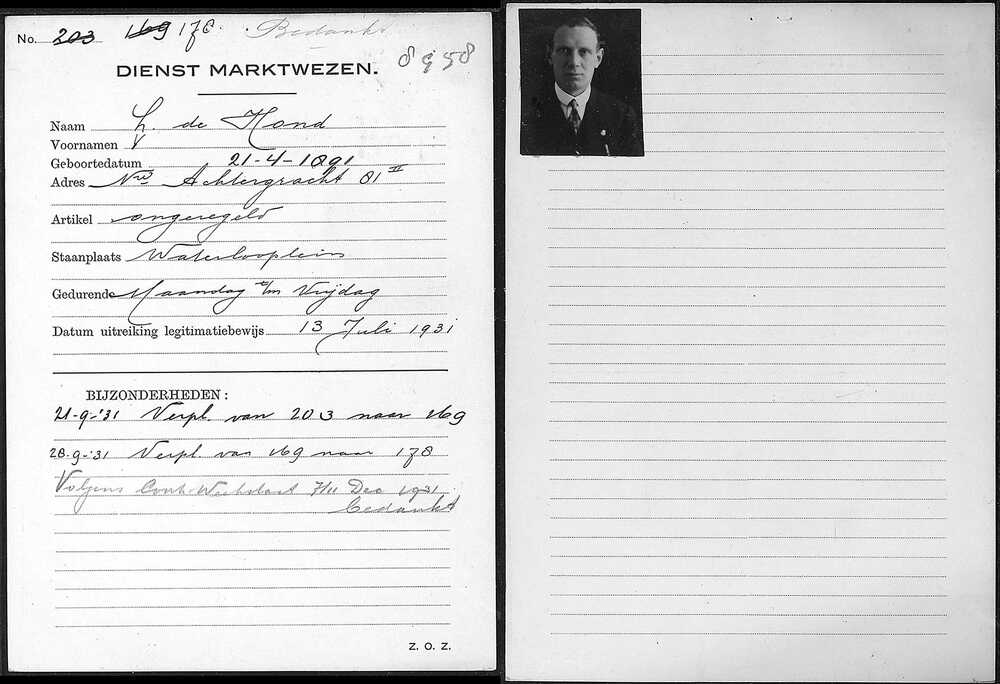 No. 203 169 178. Bedankt
8958
DIENST MARKTWEZEN.
Naam L. de Hond
Voornamen
Geboortedatum 21-4-1891
Adres Nwe Achtergracht 81 II
Artikel ongeregeld
Staanplaats Waterlooplein
Gedurende Maandag t/m Vrijdag
Datum uitreiking legitimatiebewijs 13 Juli 1931
BIJZONDERHEDEN:
21-9-'31 Verpl. van 203 naar 169
28-9-'31 Verpl. van 169 naar 178
Volgens Contr. 7/11 Dec 1931
bedankt
Z. O. Z.